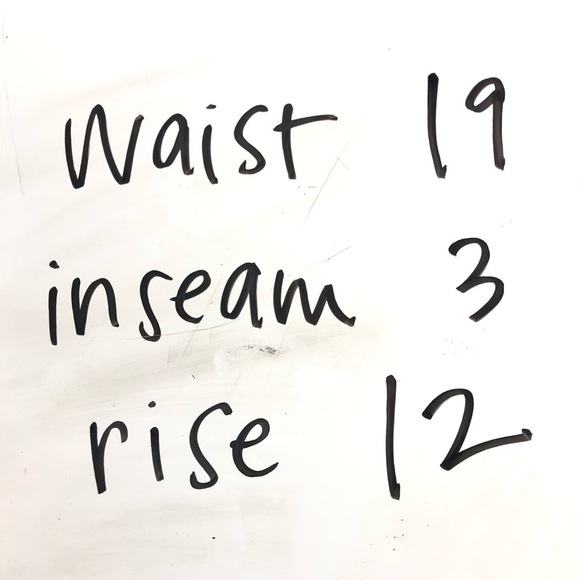 Waist 19
inseam 3
rise 12